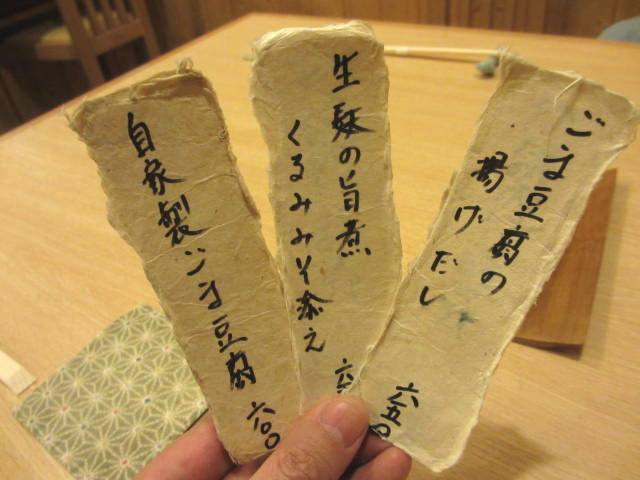 自家製ごま豆腐
六〇〇
生麩の旨煮
くるみみそ添え
ごま豆腐の
揚げだし
六五〇